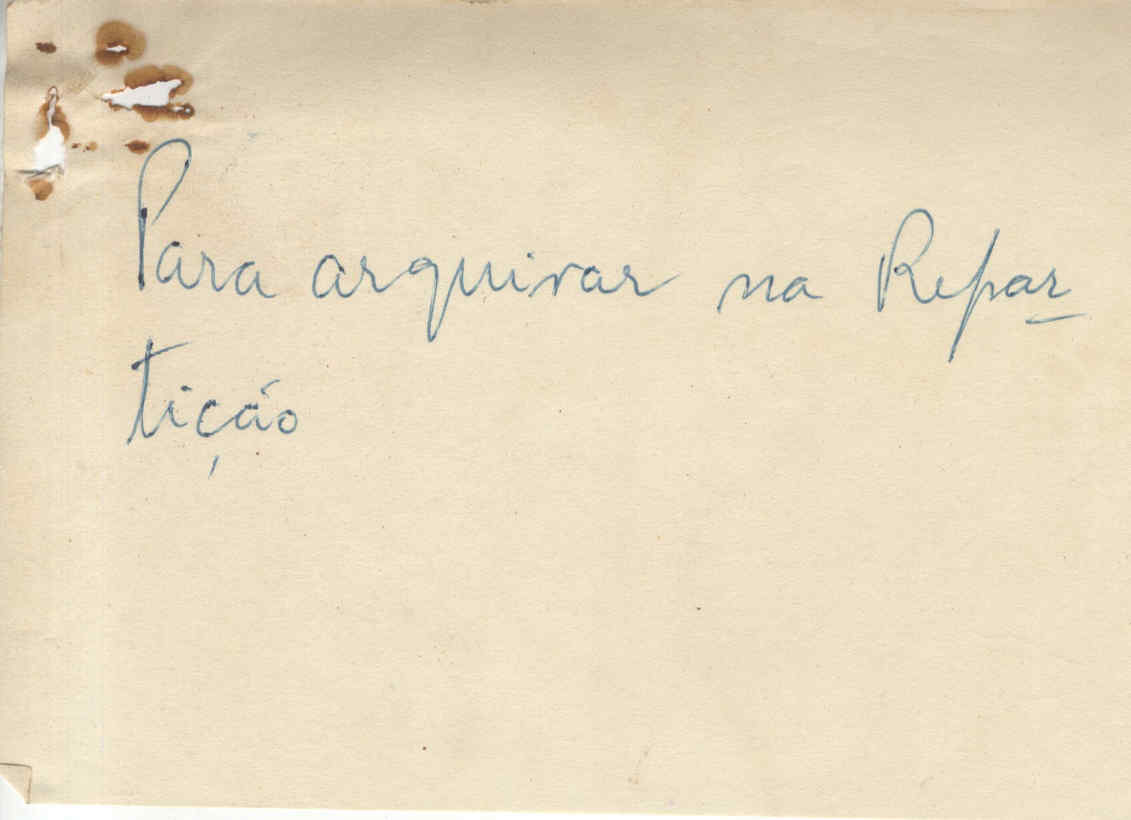 Para arquivar na Repar-
tição